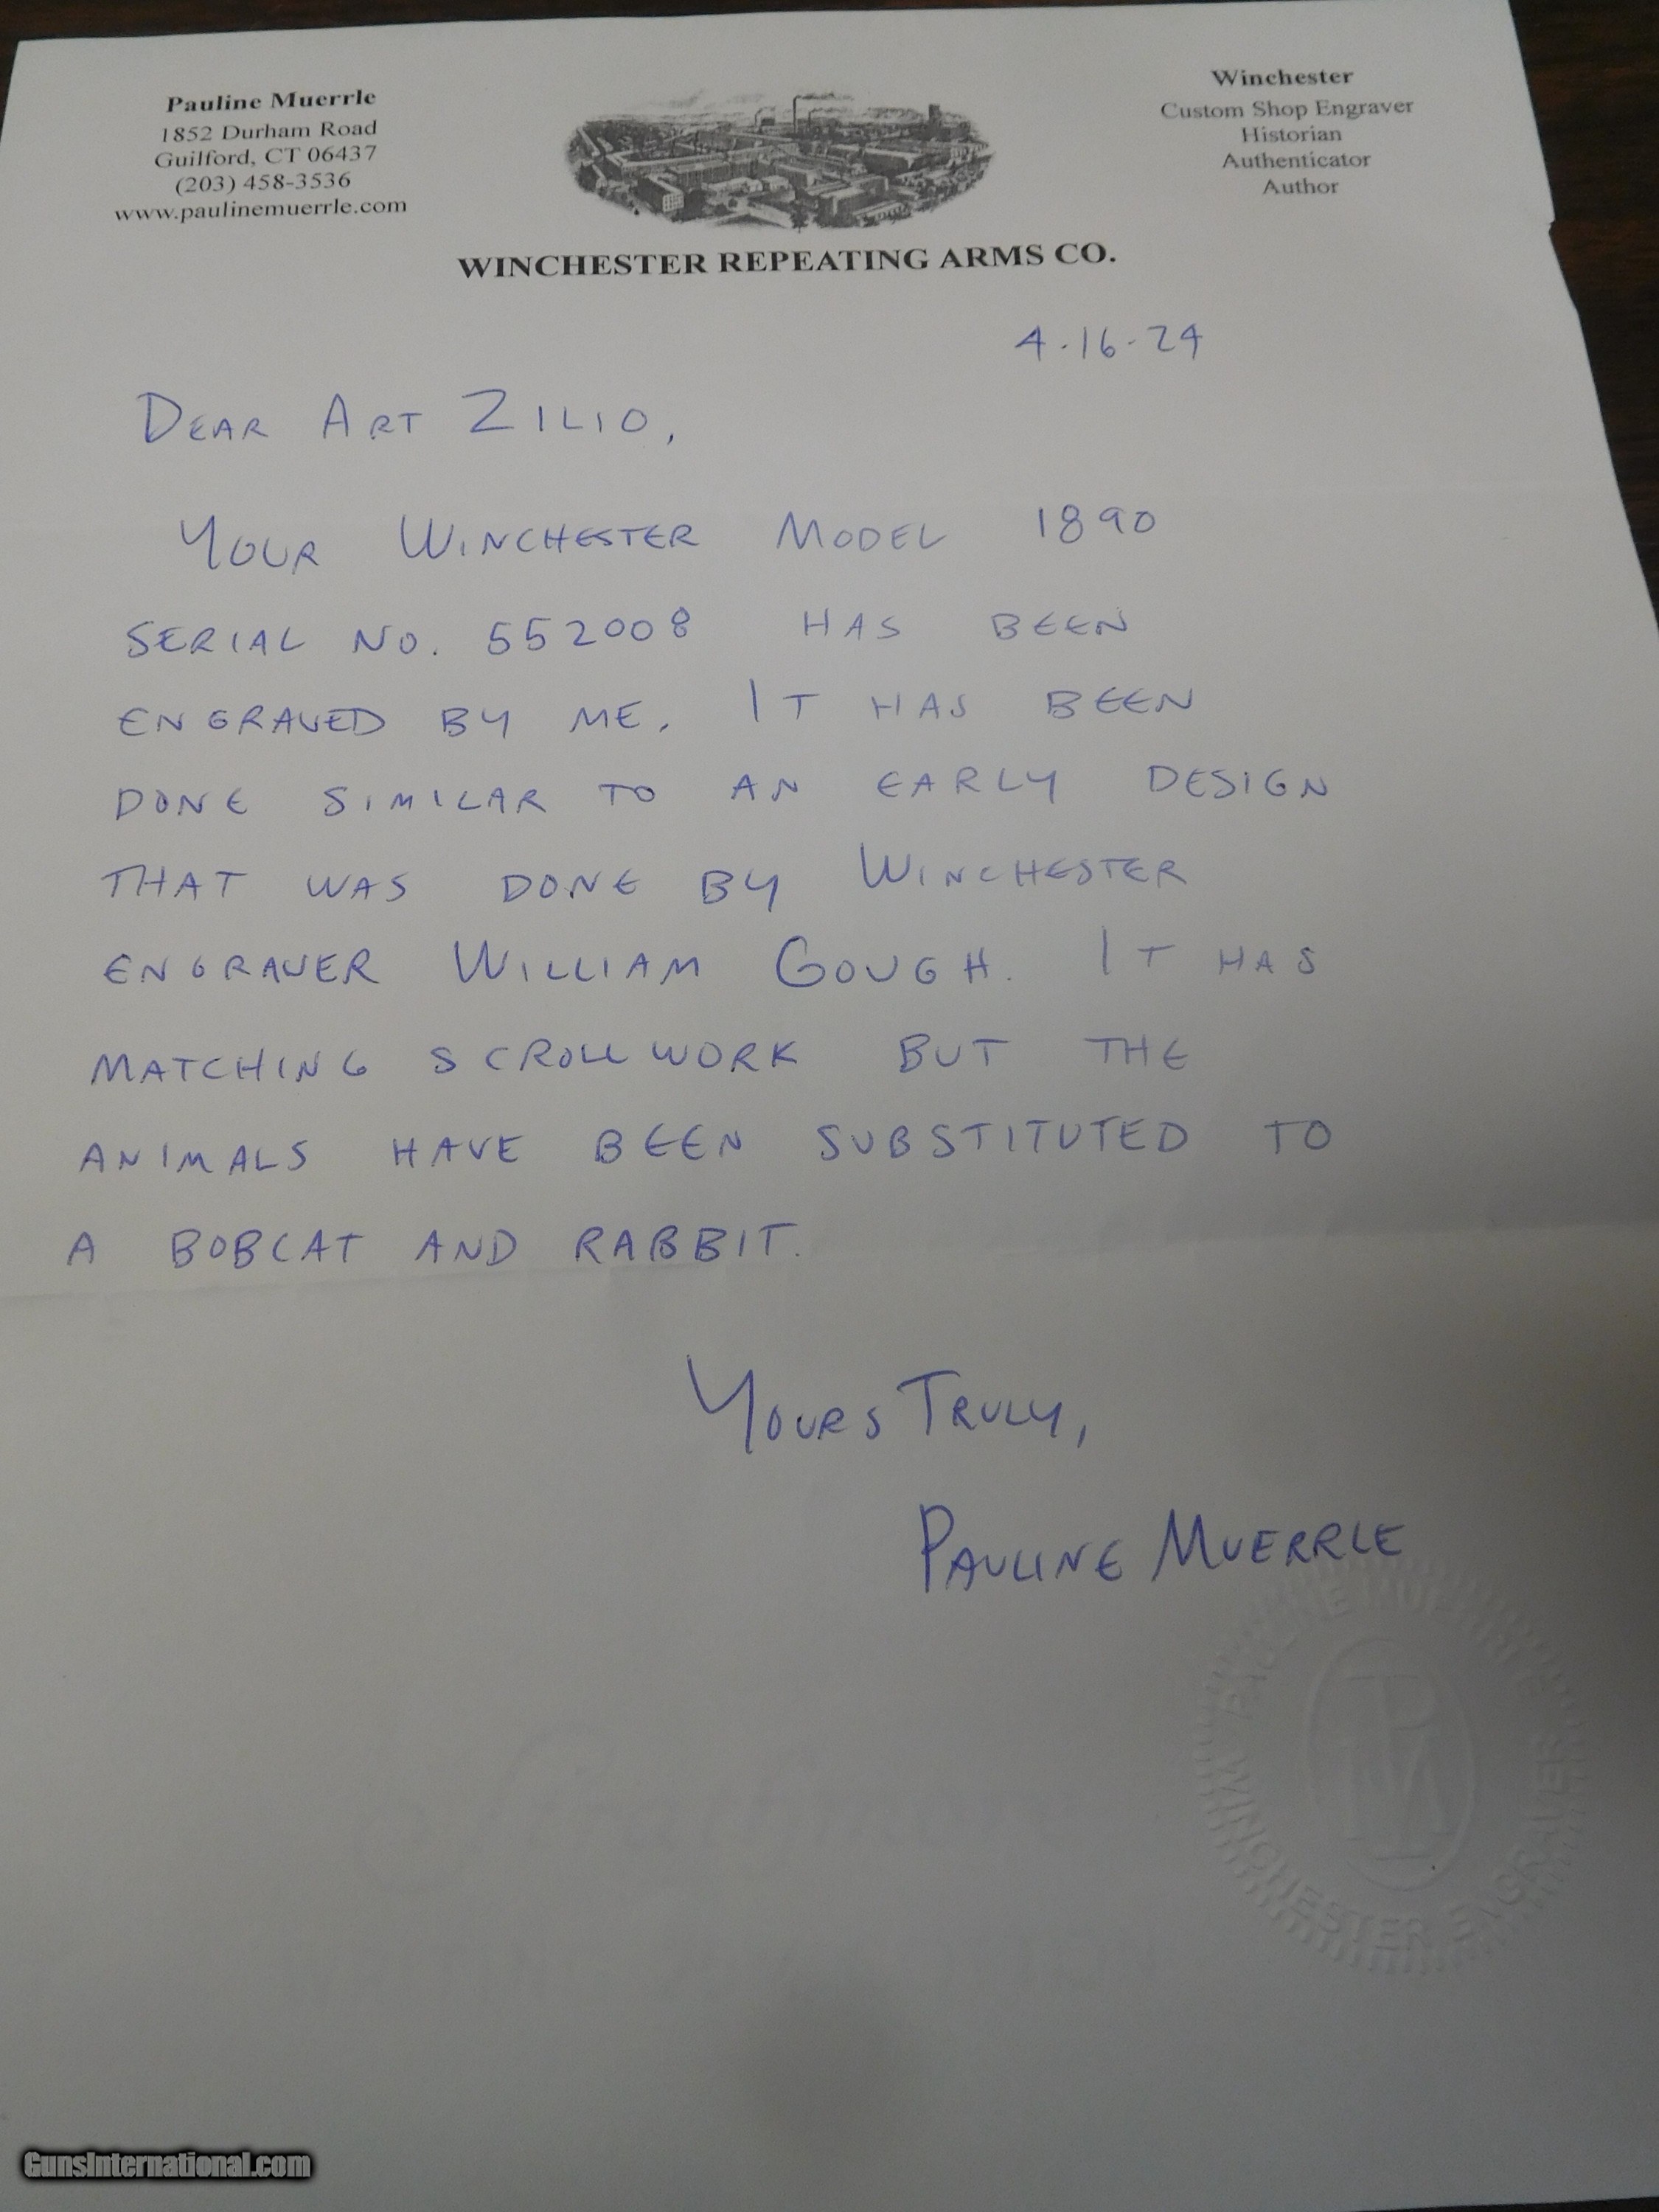 Pauline Muerrle
1852 Durham Road
Guilford, CT 06437
(203) 458-3536
www.paulinemuerrle.com
Winchester
Custom Shop Engraver
Historian
Authenticator
Author
WINCHESTER REPEATING ARMS CO.
4-16-24
DEAR ART ZILIO,
YOUR WINCHESTER MODEL 1890
SERIAL NO. 552008 HAS BEEN
ENGRAVED BY ME. IT HAS BEEN
DONE SIMILAR TO AN EARLY DESIGN
THAT WAS DONE BY WINCHESTER
ENGRAVER WILLIAM GOUGH. IT HAS
MATCHING SCROLLWORK BUT THE
ANIMALS HAVE BEEN SUBSTITUTED TO
A BOBCAT AND RABBIT.
YOURS TRULY,
PAULINE MUERRLE
PAULINE MUERRLE
WINCHESTER ENGRAVER
PM
GunsInternational.com